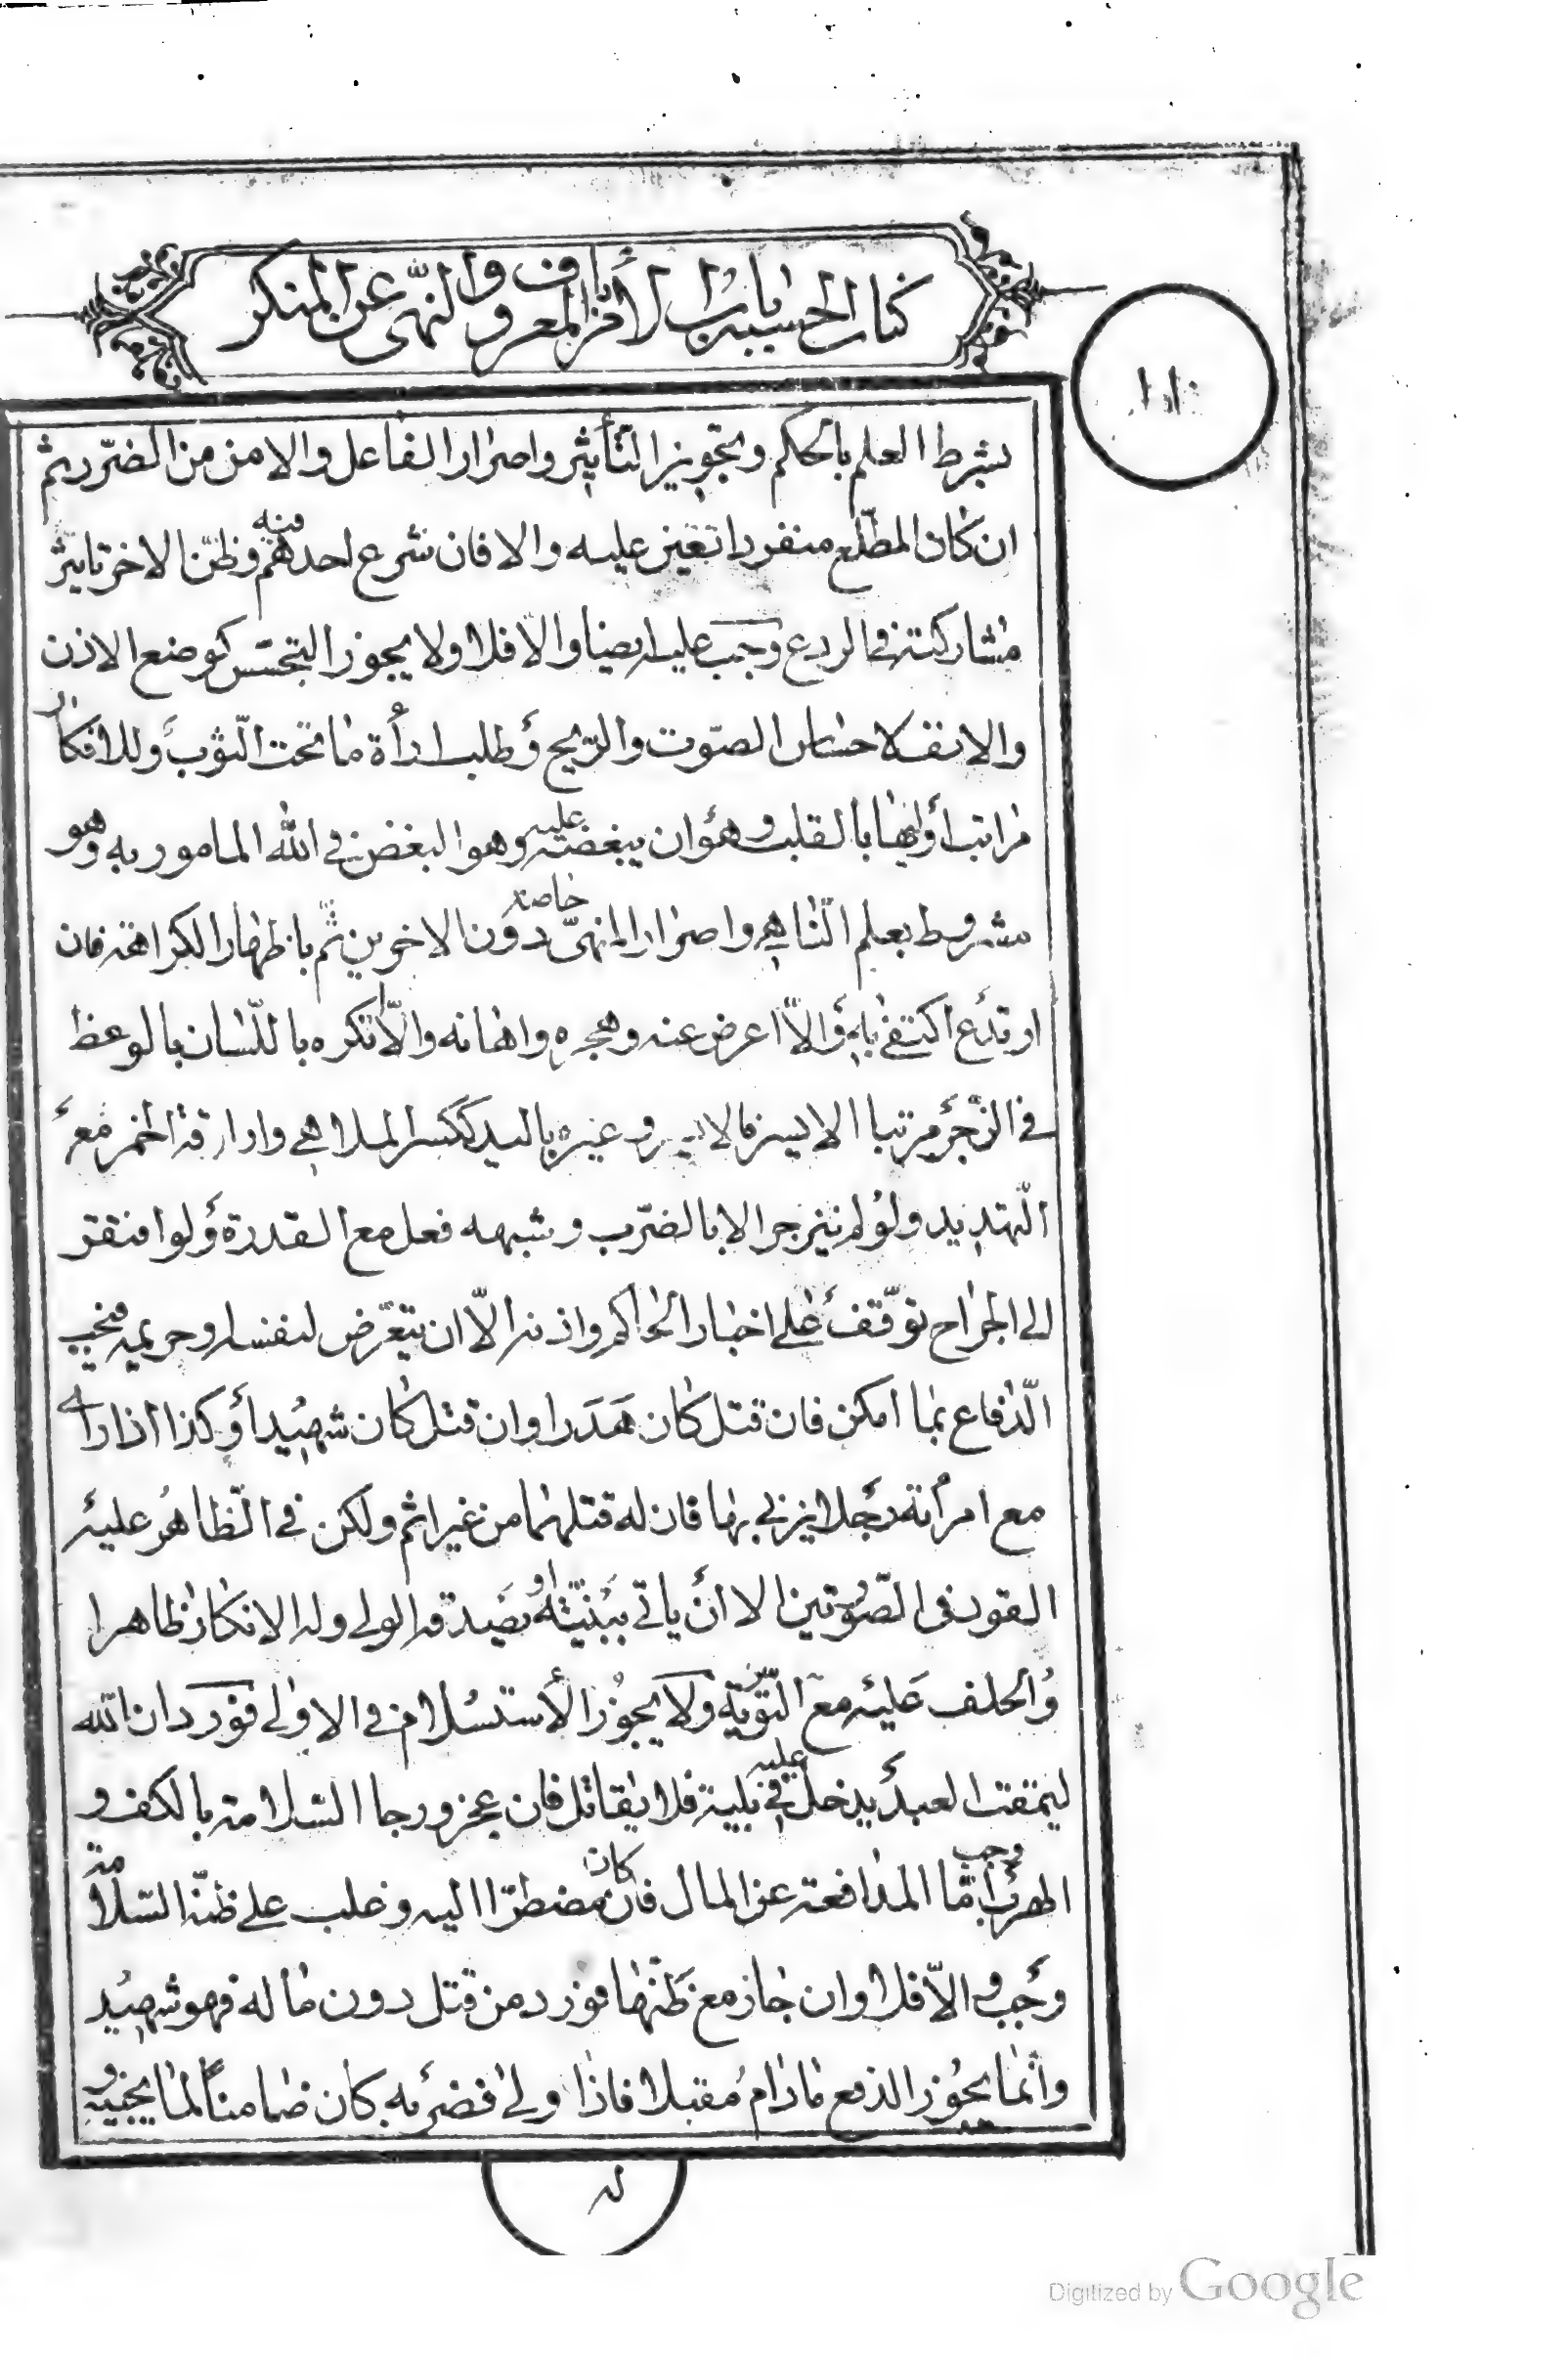 كتاب الحسبة باب الأمر بالمعروف والنهى عن المنكر
بشرط العلم بالحكم وتجويز التأثير واصرار الفاعل والامن من الضرر ثم
ان كان المطلع منفردا تعين عليه والا فان شرع احدهم فيه وظن الاخر تاثير
مشاركته فى الردع وجب عليه ايضا والا فلا ولا يجوز التجسس كوضع الاذن
والانف لاحساس الصوت والريح وطلب اراءة ما تحت الثوب وللانكار
مراتب أولها بالقلب وهو ان يبغضه عليه وهو البغض في الله المامور به وهو
مشروط بعلم الناهي واصرار المنهي خاصة دون الاخرين ثم باظهار الكراهة فان
ارتدع اكتفى به والا اعرض عنه وهجره واهانه والا انكره باللسان بالوعظ
في الزجر مرتبا الايسر فالايسر وغيره باليد ككسر الملاهي واراقة الخمر مع
التهديد ولو لم ينزجر الا بالضرب وشبهه فعل مع القدرة ولو افتقر
الى الجراح توقف على اخبار الحاكم واذنه الا ان يتعرض لنفسه وحريمه فيجب
الدفاع بما امكن فان قتل كان هدرا وان قتل كان شهيدا وكذا اذا راى
مع امرأته رجلا يزني بها فان له قتلهما من غير اثم ولكن في الظاهر عليه
القود فى الصورتين الا ان ياتى ببينة او يصدقه الولى وله الانكار ظاهرا
والحلف عليه مع التورية ولا يجوز الأستسلام في الاولى فورد ان الله
ليمقت العبد يدخل عليه في بيته فلا يقاتل فان عجز ورجا السلامة بالكف و
الهرب وجب اما المدافعة عن المال فان كان مضطرا اليه وغلب على ظنه السلامة
وجب والا فلا وان جاز مع ظنها فورد من قتل دون ماله فهو شهيد
وانما يجوز الدفع مادام مقبلا فاذا ولى فضربه كان ضامنا لما يجنيه و
Digitized by Google